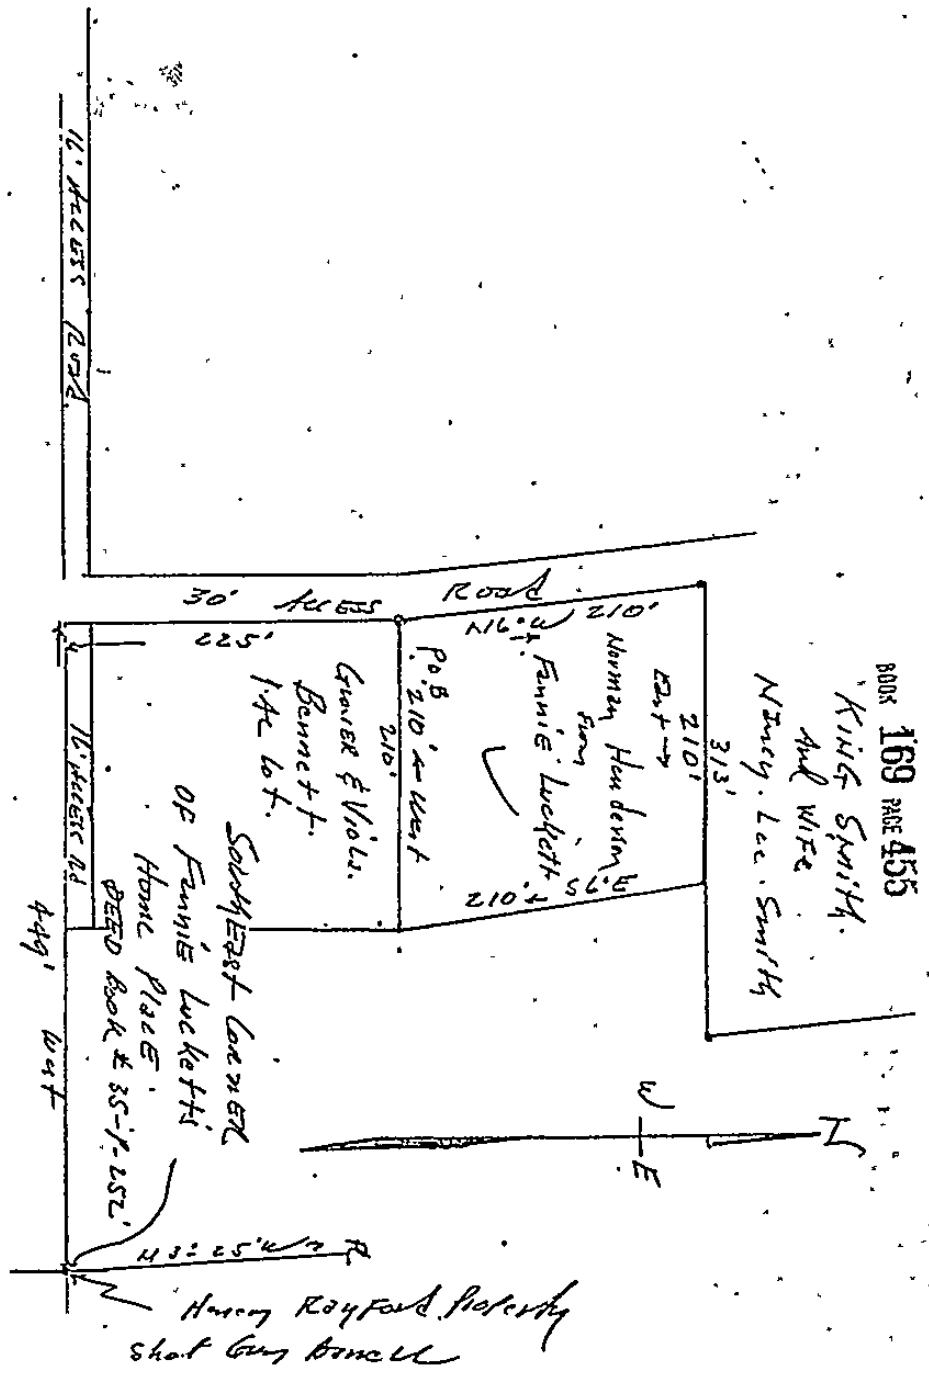 BOOK 169 PAGE 455
KING SMITH.
And WiFE
Nancy. Lee. Smith
313'
210'
East →
Norman Henderson
From
Fannie Luckett
212'
ROAD
30' ACCESS
225'
P.O.B
210' ← West
210'
Grover & Viola.
Bennett.
1 Ac Lot.
16' ACCESS Road.
16' ACCESS Rd
449' West
SouthEast Corner
OF Fannie Lucketts
Home Place.
DEED Book # 35-P-252'
N
W
E
Henry RayFord Property
Shot Gun Barrell